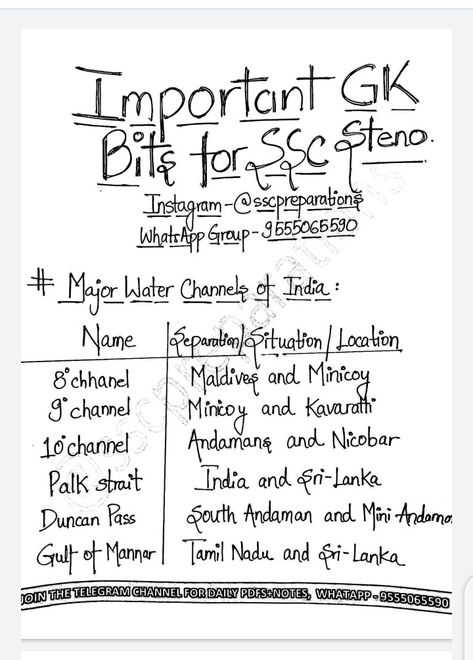 Important GK
Bits for SSC Steno.
Instagram - @sscpreparations
WhatsApp Group - 9555065590
# Major Water Channels of India :
Name | Separation/Situation/Location
8° chhanel | Maldives and Minicoy
9° channel | Minicoy and Kavaratti
10° channel | Andamans and Nicobar
Palk strait | India and Sri-Lanka
Duncan Pass | South Andaman and Mini-Andama
Gulf of Mannar | Tamil Nadu and Sri-Lanka
@sscpreparations
JOIN THE TELEGRAM CHANNEL FOR DAILY PDFS+NOTES, WHATAPP - 9555065590